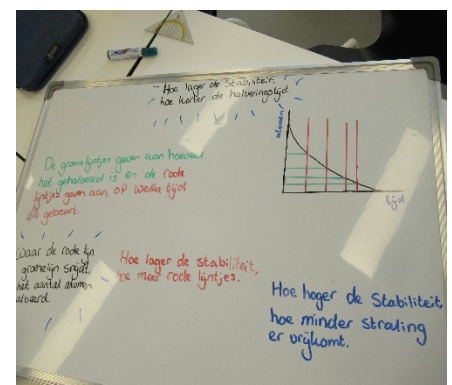 Hoe lager de stabiliteit,
hoe korter de halveringstijd.
atomen
tijd
De groene lijntjes geven aan hoeveel
het gehalveerd is en de rode
lijntjes geven aan op welke tijd
dit gebeurt.
Waar de rode lijn
groenelijn snijdt,
het aantal atomen
Hoe lager de stabiliteit,
hoe meer rode lijntjes.
Hoe hoger de stabiliteit,
hoe minder straling
er vrijkomt.